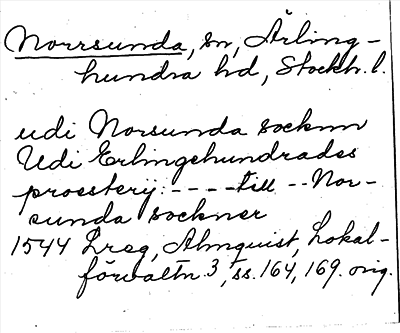 Norrsunda, sn, Ärling-
hundra hd, Stockh. l.
udi Norsunda socknn
Udi Erlingehundrades
proesterij:----till--Nor-
sunda sockner
1544 Dreg, Almquist, Lokal-
förvaltn. 3, ss. 164, 169. orig.